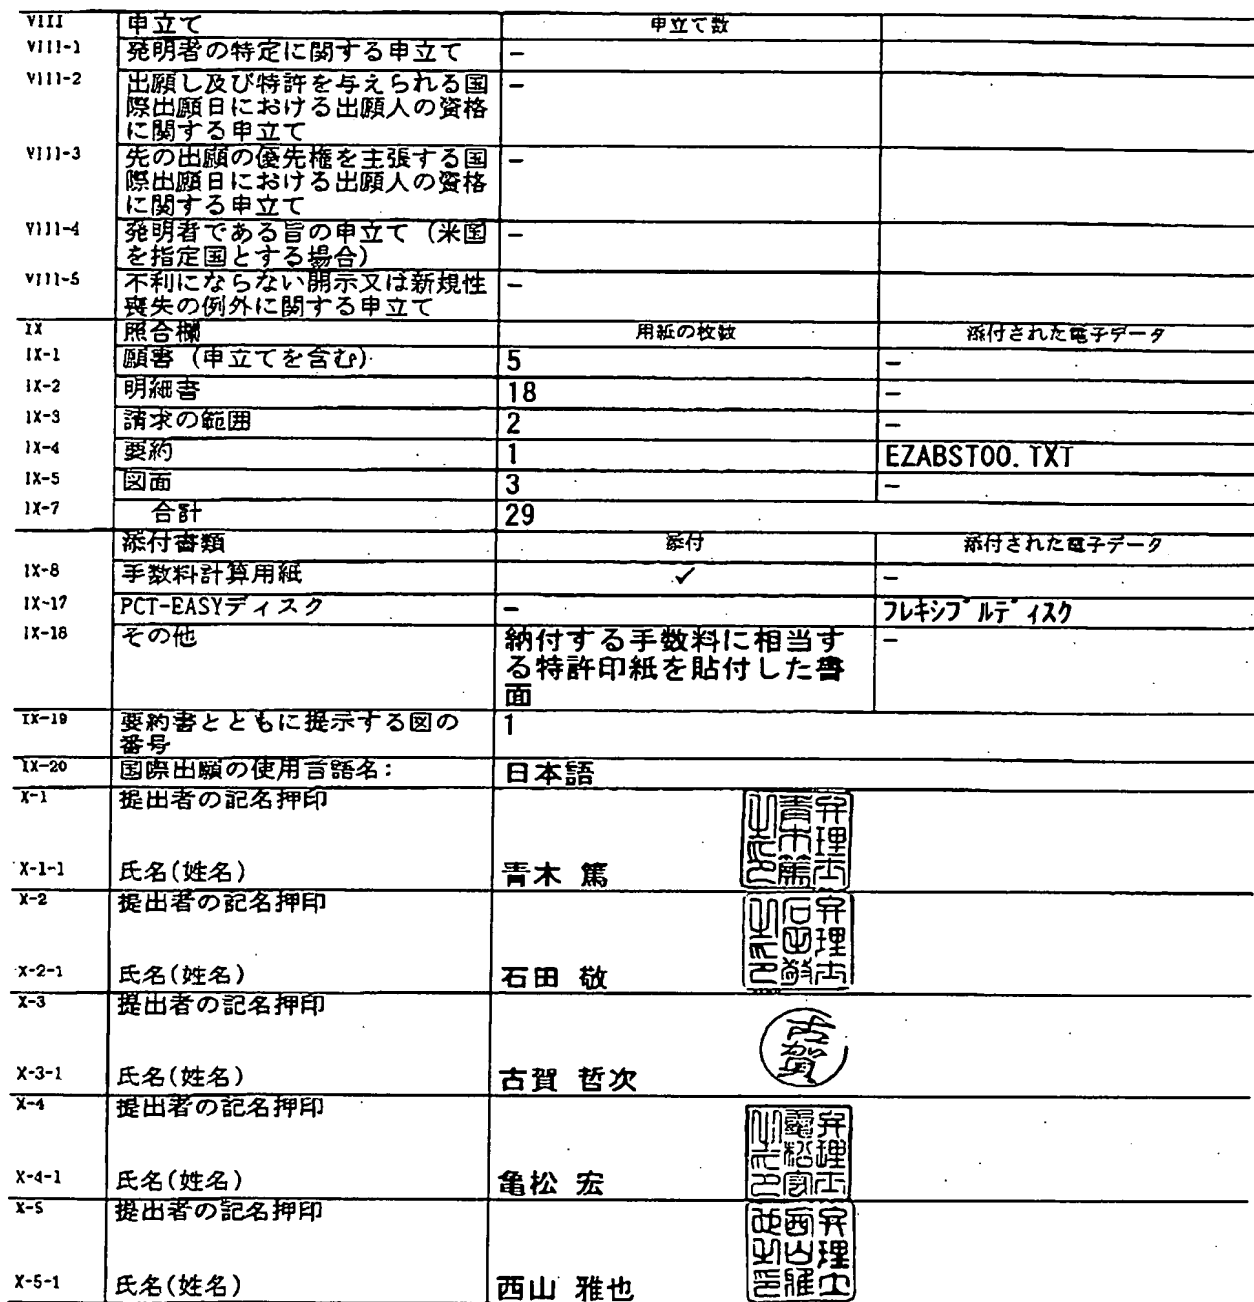 VIII 申立て 申立て数
VIII-1 発明者の特定に関する申立て -
VIII-2 出願し及び特許を与えられる国 -
際出願日における出願人の資格
に関する申立て
VIII-3 先の出願の優先権を主張する国 -
際出願日における出願人の資格
に関する申立て
VIII-4 発明者である旨の申立て (米国 -
を指定国とする場合)
VIII-5 不利にならない開示又は新規性 -
喪失の例外に関する申立て
IX 照合欄 用紙の枚数 添付された電子データ
IX-1 願書 (申立てを含む) 5 -
IX-2 明細書 18 -
IX-3 請求の範囲 2 -
IX-4 要約 1 EZABST00.TXT
IX-5 図面 3 -
IX-7 合計 29
添付書類 添付 添付された電子データ
IX-8 手数料計算用紙 ✓ -
IX-17 PCT-EASYディスク - フレキシブルディスク
IX-18 その他 納付する手数料に相当す -
る特許印紙を貼付した書
面
IX-19 要約書とともに提示する図の 1
番号
IX-20 国際出願の使用言語名: 日本語
X-1 提出者の記名押印
弁理士青木篤之印
X-1-1 氏名(姓名) 青木 篤
X-2 提出者の記名押印
弁理士石田敬之印
X-2-1 氏名(姓名) 石田 敬
X-3 提出者の記名押印
古賀
X-3-1 氏名(姓名) 古賀 哲次
X-4 提出者の記名押印
弁理士亀松宏之印
X-4-1 氏名(姓名) 亀松 宏
X-5 提出者の記名押印
弁理士西山雅也之印
X-5-1 氏名(姓名) 西山 雅也